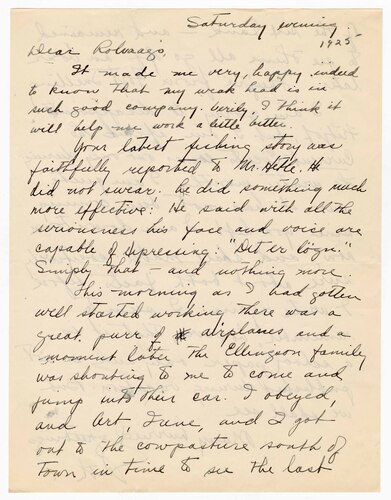 Saturday evening.
1925
Dear Rolvaags,
It made me very, happy indeed
to know that my weak head is in
such good company. Verily, I think it
will help me work a little better.
Your latest fishing story was
faithfully reported to Mr. Hetle. He
did not swear. he did something much
more effective! He said with all the
seriousness his face and voice are
capable of expressing: "Det er løgn."
Simply that – and nothing more.
This morning as I had gotten
well started working there was a
great purr of airplanes and a
moment later the Ellingson family
was shouting to me to come and
jump into their car. I obeyed,
and Art, Irene, and I got
out to the cowpasture south of
town in time to see the last